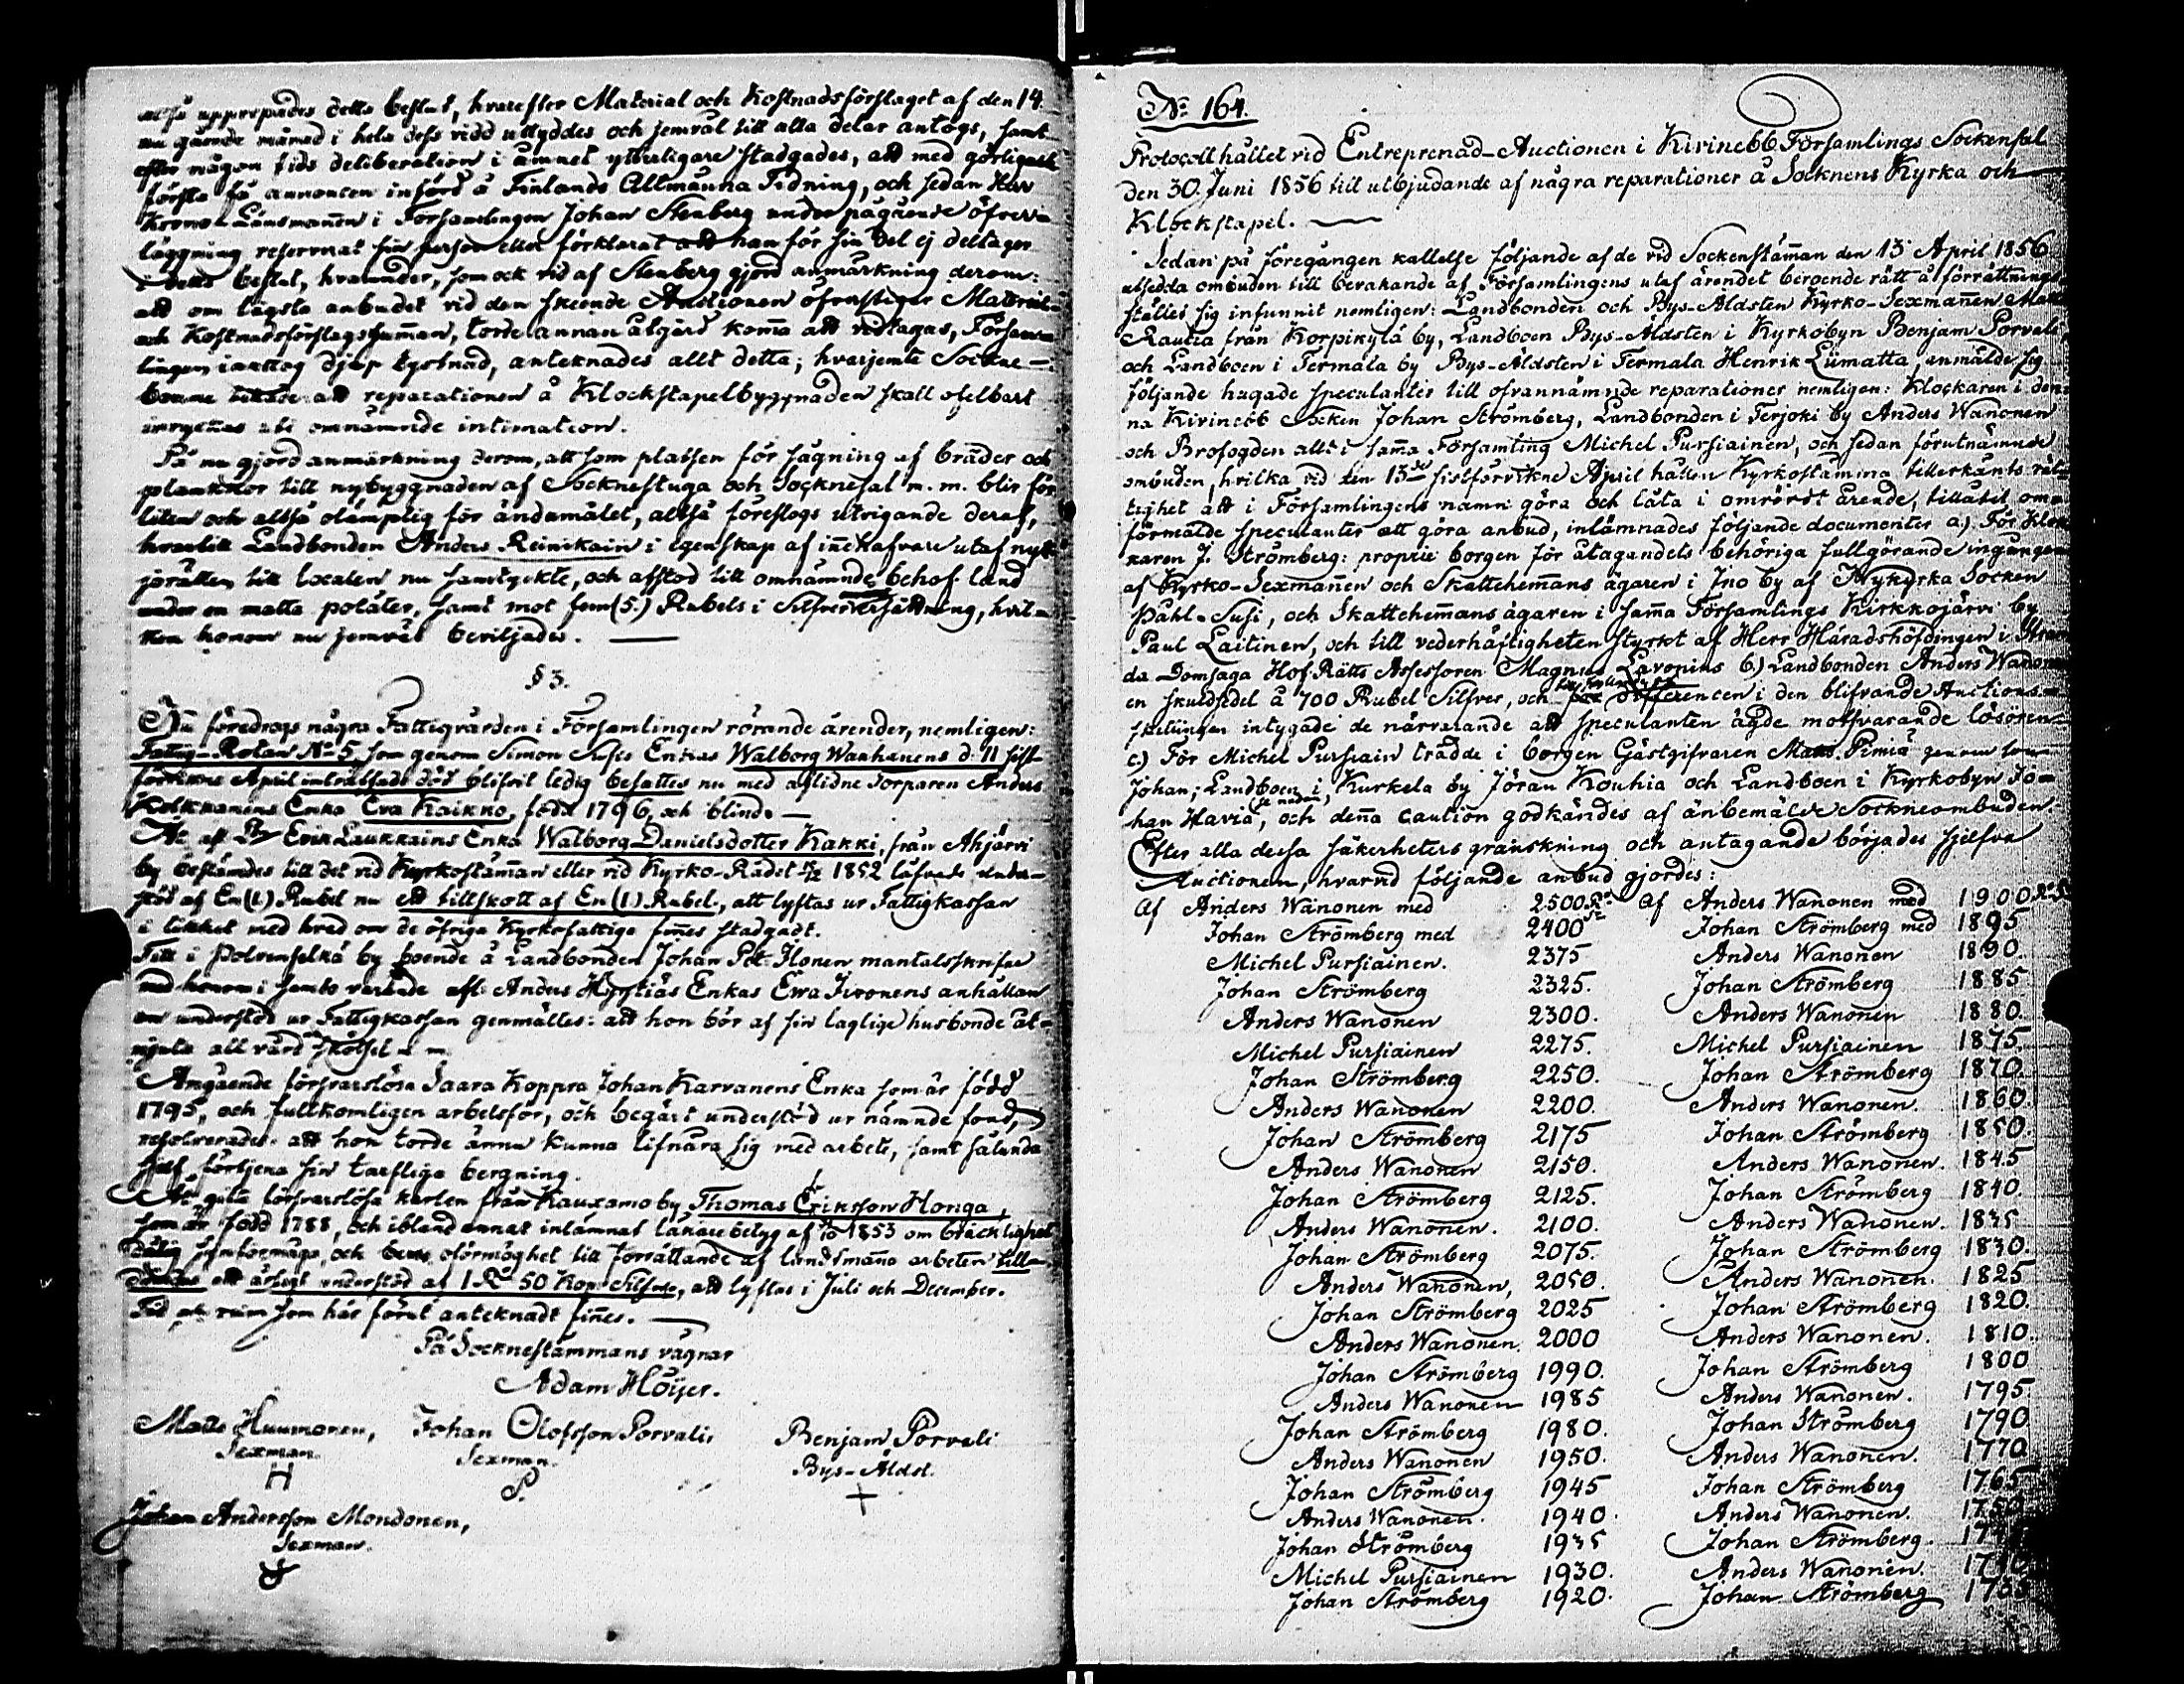 upprepades detta beslut, hvarefter Material och Kostnadsförslaget af den 14
nu gående månad i hela dess vidd uttyddes och jemväl till alla delar antogs, samt
efter någon tids deliberation i ämnet ytterligare stadgades, att med görligaste
första få annoncen införd å Finlands Allmänna Tidning, och sedan Herr
Krono-Länsmannen i Församlingen Johan Stenberg under pågående öfver-
läggning reserverat sin person eller förklarat att han för sin del ej deltager
i detta beslut, hvarunder, som ock vid af Stenberg gjord anmärkning derom:
att om lägsta anbudet vid den skeende Auctionen öfverstiger Material-
och Kostnadsförslagssumman, torde annan åtgärd komma att vidtagas, Försam-
lingen iakttog djup tystnad, anteknades allt detta; hvarjemte Sockne-
att reparationen å Klockstapelbyggnaden skall ofelbart
i omnämnde intimation.
På nu gjord anmärkning derom, att som platsen för sågning af bräder och
plankkor till nybyggnaden af Socknestuga och Socknesal m. m. blir för
liten och altså olämplig för ändamålet, altså föreslogs utvigande deraf,
hvartill Landbonden Anders Reinikain i egenskap af innehafvare utaf nytt-
jorätten till localen nu samtyckte, och afstod till omnämnde behof land
under en matta potäter, samt mot fem (5.) Rubels i Silfver ersättning, hvil-
ken honom nu jemväl beviljades.
§ 3.
Nu föredrogs några Fattigvården i Församlingen rörande ärender, nemligen:
Fattig-Rotan No 5, som genom Simon Enkas Walborg Wanhanens d. 11 sist-
förvikne April inträffade död blifvit ledig besattes nu med aflidne Torparen Anders
Kolkkanens Enka Eva Kaikko, född 1796, och blind.
At afl. Erik Laukkains Enka Walborg Danielsdotter Kakki, från Ahjärvi
by bestämdes till det vid Kyrkostämman eller vid Kyrko-Rådet 1852 låfvade under-
stöd af En (1.) Rubel nu ett tillskott af En (1.) Rubel, att lyftas ur Fattigkassan
i likhet med hvad om de öfriga Kyrkofattige finnes stadgadt.
Till i Polvenselkä by boende å Landbonden Johan Pet. Ilonen mantalsskrifne
med honom i sambo varande afl. Anders Hyytiäs Enkas Ewa Iivonens anhållan
om understöd ur Fattigkassan genmältes: att hon bör af sin laglige husbonde åt-
njuta all vård skötsel
Angående försvarslösa Saara Koppra Johan Karvanens Enka som är född
1795, och fullkomligen arbetsför, och begärt understöd ur nämnde fond,
resolverades: att hon torde ännu kunna lifnära sig med arbete, samt sålunda
sjelf förtjena sin tarfliga bergning.
At gula försvarslösa karlen från Kauxamo by Thomas Eriksson Honga,
som är född 1788, och ibland annat inlämnat läkarebetyg af 1853 om bräcklighet
dålig synförmåga, och oförmöghet till förrättande af landtmanna arbeten till-
ett årligt understöd af 1 R. 50 Kop. Silfver, att lyftas i Juli och December.
Tid och rum som här förut anteknadt finnes.
På Socknestämmans vägnar
Adam Höijer.
Matts Huumonen, Johan Olofsson Porvali, Benjam Porvali
Sexman. Sexman. Bys-Äldst.
H P. +
Johan Andersson Mondonen,
Sexman.
No 164.
Protocoll hållet vid Entreprenad-Auctionen i Kivinebb Församlings Sockensal
den 30. Juni 1856 till utbjudande af några reparationer å Socknens Kyrka och
Klockstapel.
Sedan på föregången kallelse följande af de vid Sockenstämman den 13 April 1856
utsedda ombuden till bevakande af Församlingens utaf ärendet beroende rätt å förrättnings
stället sig infunnit nemligen: Landbonden och Bys-Äldsten Kyrko-Sexmannen Matts
Rautia från Korpikylä by, Landboen Bys-Äldsten i Kyrkobyn Benjam Porvali
och Landboen i Termala by Bys-Äldsten i Termala Henrik Liimatta, anmälde sig
följande hugade speculanter till ofvannämnde reparationer nemligen: Klockaren i den-
na Kivinebb Socken Johan Strömberg, Landbonden i Terjoki by Anders Wanonen
och Brofogden allt i samma Församling Michel Pursiainen, och sedan förutnämnde
ombuden, hvilka vid den 13de sistförvikne April hållen Kyrkostämma tillerkänts rät-
tighet att i Församlingens namn göra och låta i omrördt ärende, tillåtit om-
förmälde speculanter att göra anbud, inlämnades följande documenter a.) För Kloc-
karen J. Strömberg: proprie borgen för åtagandets behöriga fullgörande ingången
af Kyrko-Sexmannen och Skattehemmans ägaren i Ino by af Nykyrka Socken
Påhl Susi, och Skattehemmans ägaren i samma Församlings Kirkkojärvi by
Paul Laitinen, och till vederhäftigheten styrkt af Herr Häradshöfdingen i Stran-
da Domsaga Hof-Rätts Assessoren Magnus Lavonius b.) Landbonden Anders Wanonen
en skuldsedel å 700 Rubel Silfver, och differencen i den blifvande Auctions-
skillingen intygade de närvarande att speculanten ägde motsvarande lösören
c.) För Michel Pursiain trädde i borgen Gästgifvaren Matts Pimiä genom son
Johan; Landboen i Kurkela by Jöran Kouhia och Landboen i Kyrkobyn Jo-
han Havia, och denna caution godkändes af änbemälde Sockneombuden.
Efter alla dessa säkerheters granskning och antagande börjades sjelfva
Auctionen, hvarvid följande anbud gjordes:
Af Anders Wanonen med 2500 Ro Sr
Johan Strömberg med 2400
Michel Pursiainen. 2375
Johan Strömberg 2325.
Anders Wanonen 2300.
Michel Pursiainen 2275.
Johan Strömberg 2250.
Anders Wanonen 2200.
Johan Strömberg 2175
Anders Wanonen 2150.
Johan Strömberg 2125.
Anders Wanonen. 2100.
Johan Strömberg 2075.
Anders Wanonen, 2050.
Johan Strömberg 2025
Anders Wanonen. 2000
Johan Strömberg 1990.
Anders Wanonen 1985
Johan Strömberg 1980.
Anders Wanonen 1950.
Johan Strömberg 1945
Anders Wanonen. 1940.
Johan Strömberg 1935
Michel Pursiainen 1930.
Johan Strömberg 1920.
Af Anders Wanonen med 1900 Ro Sr
Johan Strömberg med 1895
Anders Wanonen 1890.
Johan Strömberg 1885
Anders Wanonen 1880.
Michel Pursiainen 1875.
Johan Strömberg 1870.
Anders Wanonen. 1860.
Johan Strömberg 1850.
Anders Wanonen. 1845
Johan Strömberg 1840.
Anders Wanonen. 1835
Johan Strömberg 1830.
Anders Wanonen. 1825
Johan Strömberg 1820.
Anders Wanonen. 1810.
Johan Strömberg 1800
Anders Wanonen. 1795
Johan Strömberg 1790
Anders Wanonen. 1770
Johan Strömberg 1765
Anders Wanonen. 1750
Johan Strömberg.
Anders Wanonen.
Johan Strömberg